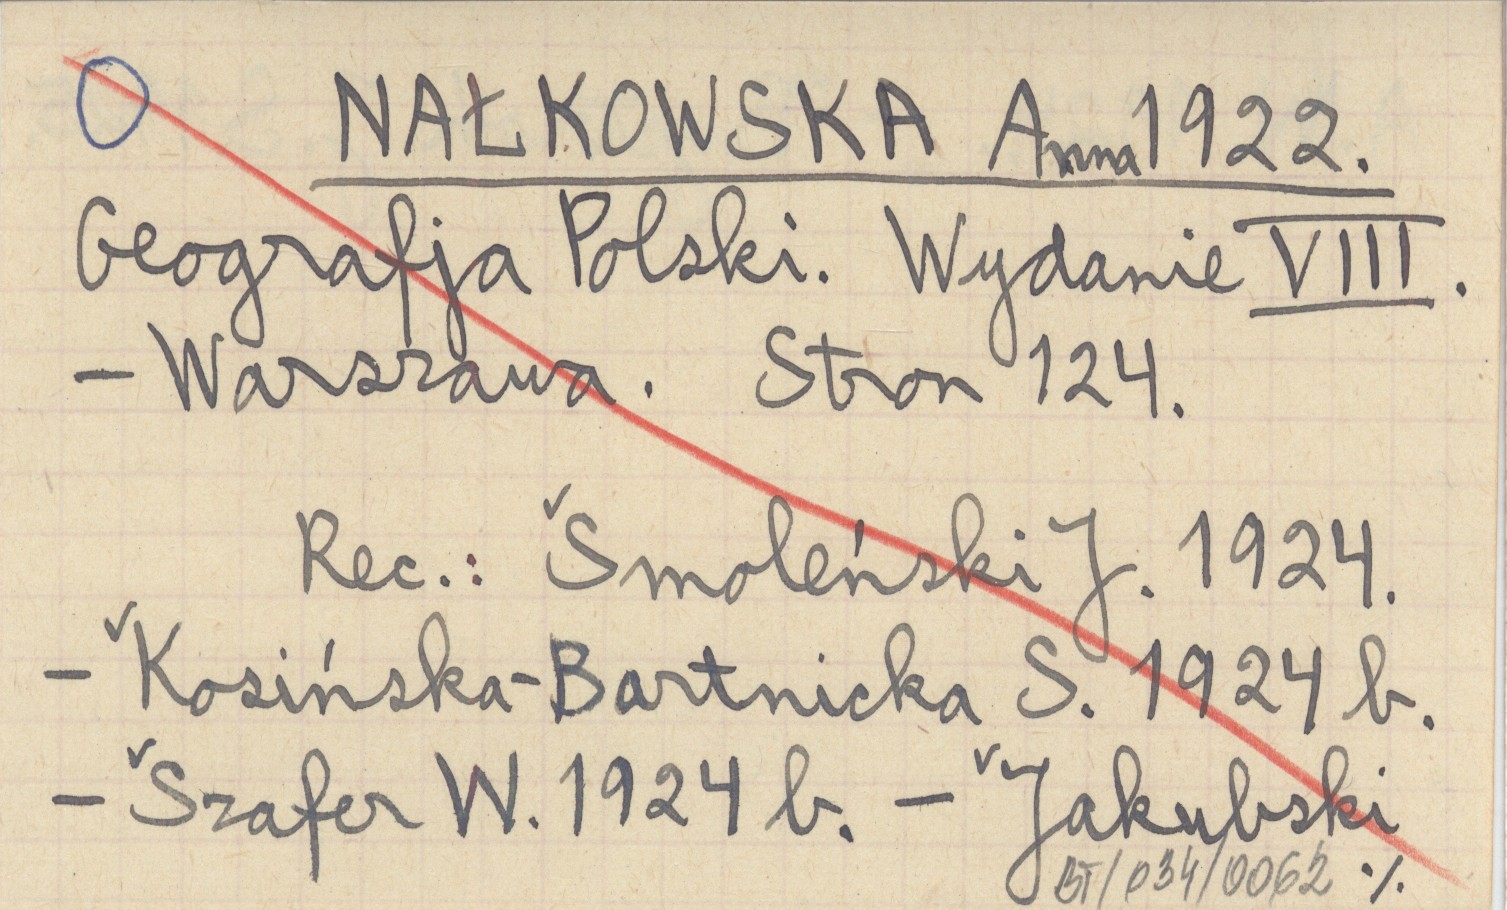 NAŁKOWSKA Anna 1922.
Geografja Polski. Wydanie VIII.
— Warszawa. Stron 124.
Rec.: Smoleński J. 1924.
— Kosińska-Bartnicka S. 1924 b.
— Szafer W. 1924 b. — Jakubski
BT/034/0062 ·/.